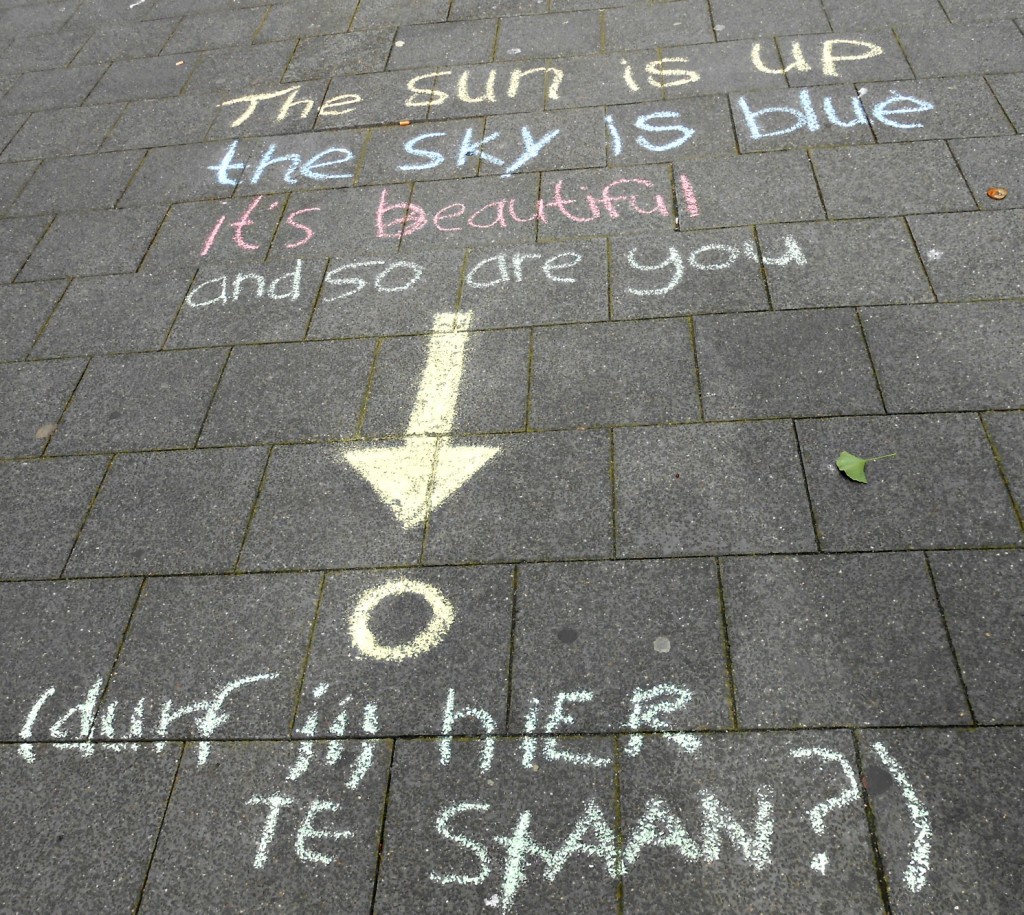 The sun is up
the sky is blue
it's beautiful
and so are you
(durf jij hIER
TE StAAN?)